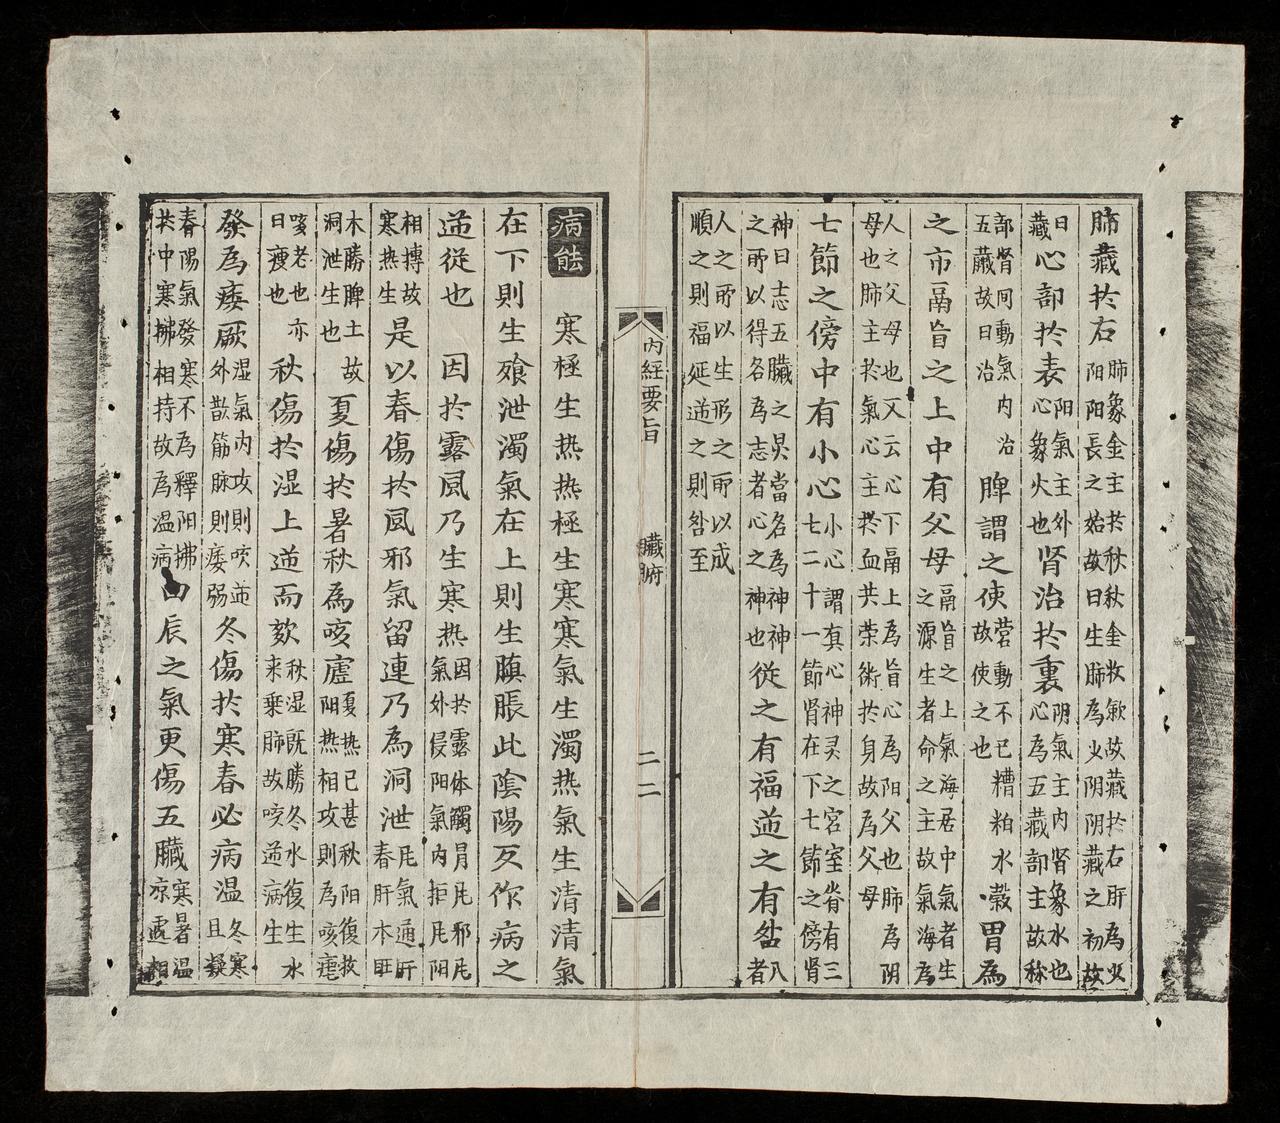 肺藏於右肺象金主於秋秋金收歛故藏於右肝為火阳阳長之始故曰生肺為火阴阴藏之初故
曰藏心部於表阳氣主外心象火也腎治於裏阴氣主内腎象水也心為五藏部主故称
部腎间動氣内治五藏故曰治脾謂之使营動不已故使之也糟粕水穀胃為
之市鬲盲之上中有父母鬲盲之上氣海居中氣者生之源生者命之主故氣海為
人之父母也又云心下鬲上為盲心為阳父也肺為阴母也肺主於氣心主於血共荣衛於身故為父母
七節之傍中有小心小心謂真心神灵之宫室脊有三七二十一節腎在下七節之傍腎
神曰志五臟之灵當名為神神之所以得名為志者心之神也從之有福逆之有咎八者
人之所以生形之所以成順之則福延逆之則咎至
内經要旨 臟腑 二二
病能 寒極生热热極生寒寒氣生濁热氣生清清氣
在下則生飱泄濁氣在上則生䐜脹此陰陽反作病之
逆從也 因於露風乃生寒热因於露体觸冒凡邪凡氣外侵阳氣内拒凡阳
相搏故寒热生是以春傷於風邪氣留連乃為洞泄凡氣通肝春肝木旺
木勝脾土故洞泄生也夏傷於暑秋為痎瘧夏热已甚秋阳復收阳热相攻則為痎瘧
痎老也亦曰瘦也秋傷於湿上逆而欬秋湿既勝冬水復生水来乗肺故咳逆病生
發為痿厥湿氣内攻則咳逆外散筋脉則痿弱冬傷於寒春必病温冬寒且凝
春陽氣發寒不為釋阳拂共中寒拂相持故為温病四辰之氣更傷五臟寒暑温凉遞相